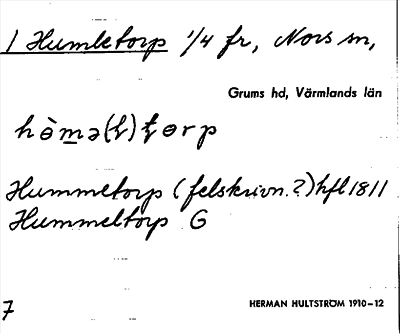 1 Humletorp 1/4 fr, Nors sn,
Grums hd, Värmlands län
Hummetorp (felskrivn.?) hfl 1811
Hummeltorp G
7
HERMAN HULTSTRÖM 1910–12